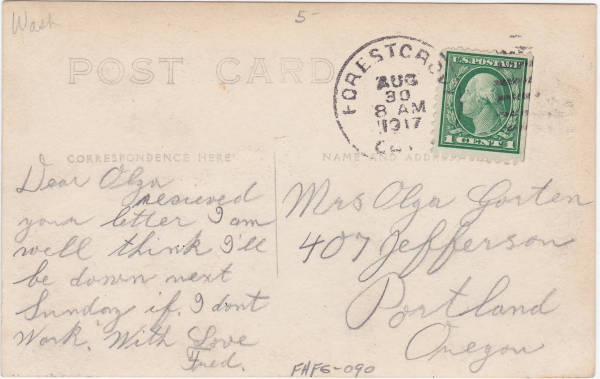 Wash
5-
POST CARD
FORESTGRO
AUG
30
8 AM
1917
U.S. POSTAGE
1 CENT 1
CORRESPONDENCE HERE
NAME AND ADDRESS
Dear Olga
resieved
your letter I am
well think I'll
be down next
Sunday if I dont
work. With Love
Fred.
Mrs Olga Gorten
407 Jefferson
Portland
Oregon
FHFG-090